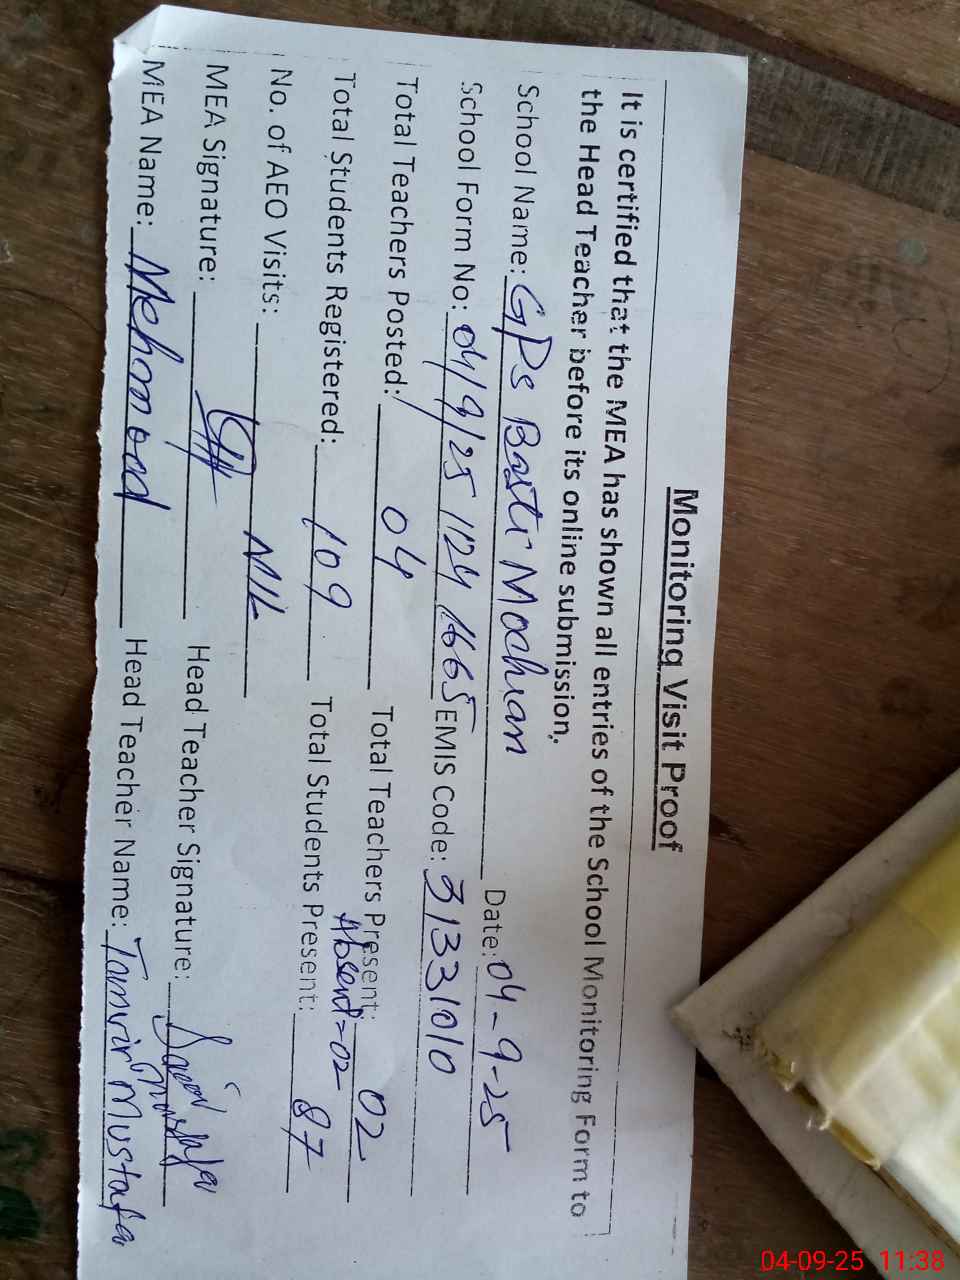 Monitoring Visit Proof
It is certified that the MEA has shown all entries of the School Monitoring Form to
the Head Teacher before its online submission.
School Name: GPS Basti Mochian Date: 04-9-25
School Form No: 04/9/25/1124/1665 EMIS Code: 31331010
Total Teachers Posted: 04 Total Teachers Present: 02
Absent=02
Total Students Registered: 109 Total Students Present: 87
No. of AEO Visits: NIL
MEA Signature: Head Teacher Signature:
MEA Name: Mehmood Head Teacher Name: Tanvir Mustafa
04-09-25 11:38